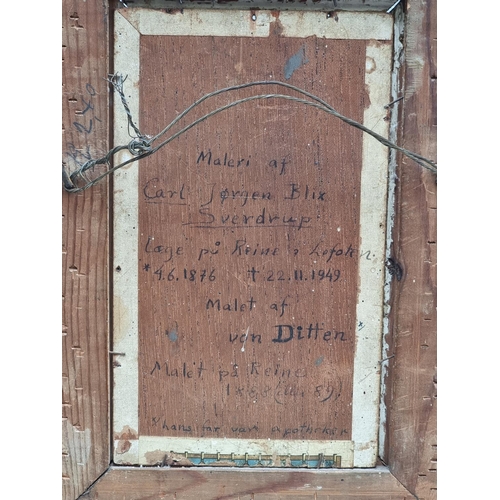 Maleri af
Carl Jørgen Blix
Sverdrup
læge på Reine i Lofoten
* 4.6.1876 † 22.11.1949
Malet af
von Ditten
Malet på Reine
hans far var apotheker